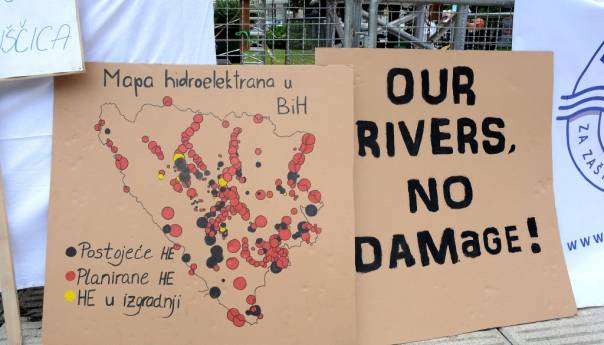 IŠČICA
Mapa hidroelektrana u
BiH
Postojeće HE
Planirane HE
HE u izgradnji
OUR
RIVERS,
NO
DAMaGE!
ZA ZAŠT
www.